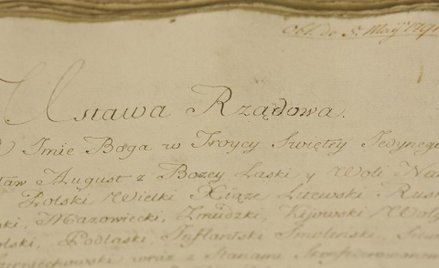 Obl. de 5. Maÿ 1791
Ustawa Rządowa.
W Imie Boga w Troycy Swiętey Jedynego
August z Bozey Łaski y Woli Na
Polski Wielki Xiąze Litewski Rus
Mazowiecki, Zmudzki, Kijowski Woł
Podlaski, Inflantski Smolenski,
wraz z Stanami Skonfederowanem